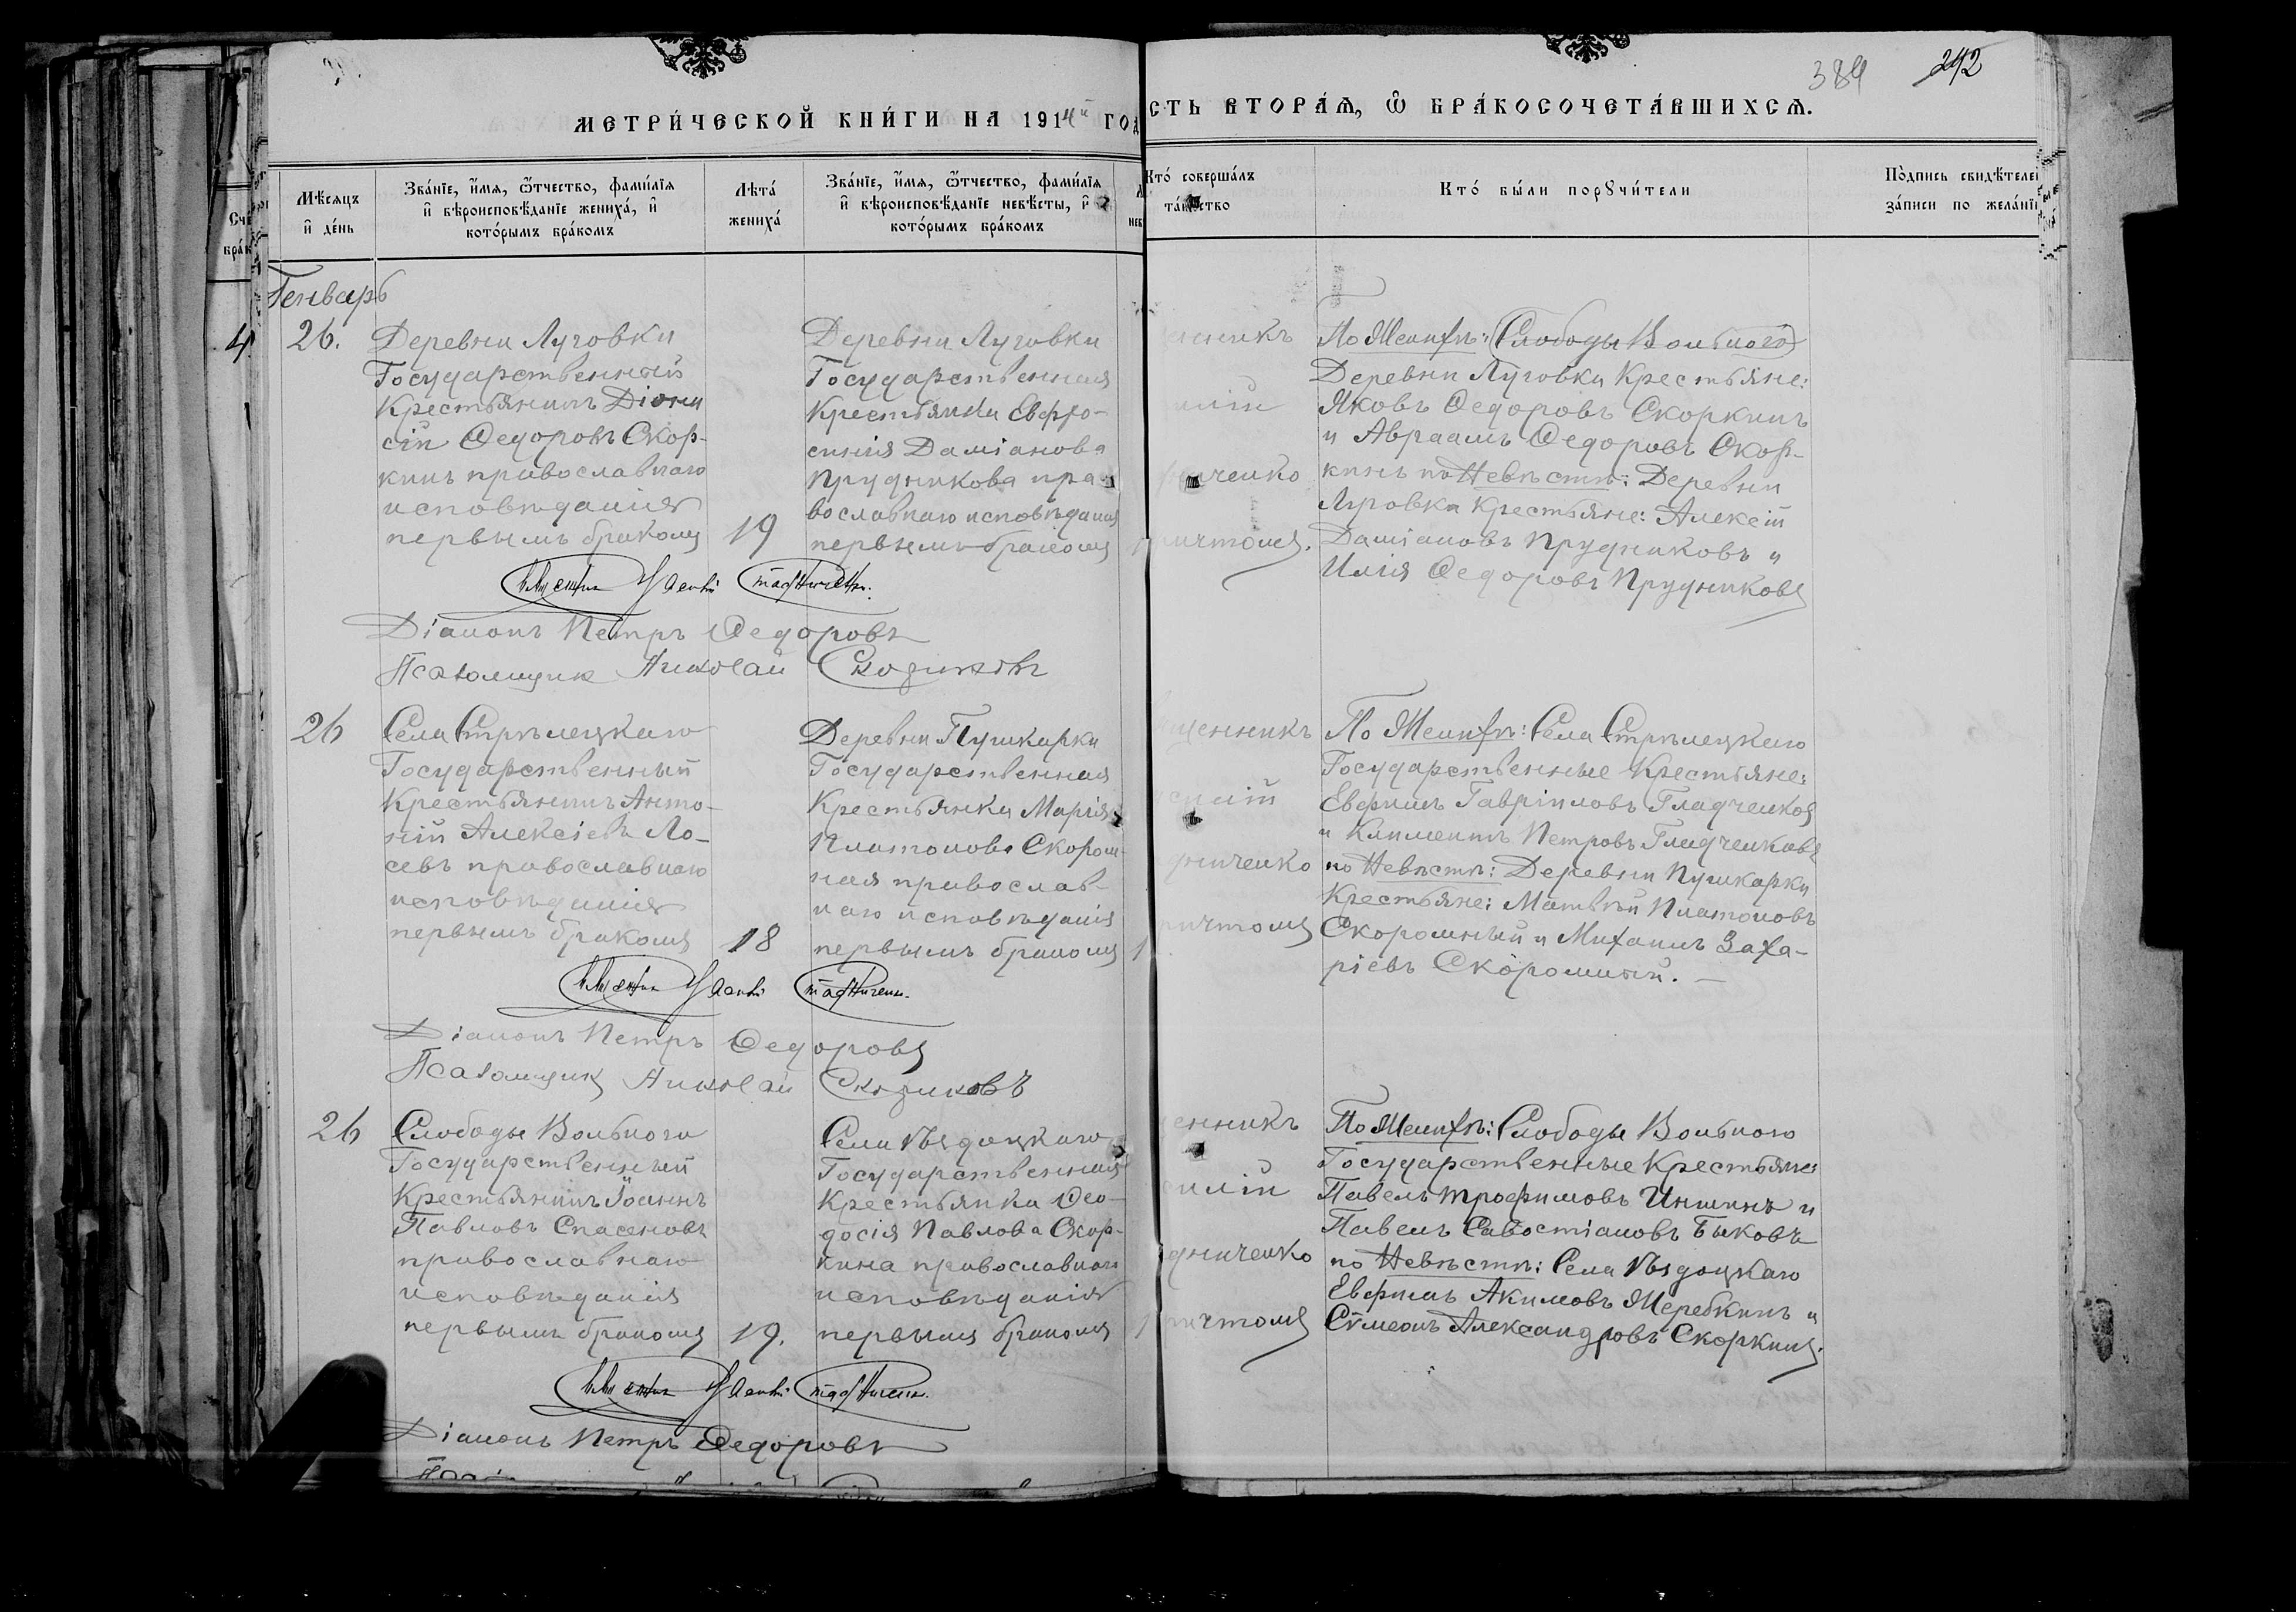 384 242
МЕТРИ́ЧЕСКОЙ КНИ́ГИ НА 1914й ГОД
СТЬ ВТОРА́Ѧ, Ѿ БРА́КОСОЧЕТА́ВШИХСѦ.
Счё
бра́к
Мѣ́сяцъ
и҆ де́нь
Зва́нїе, и҆́мѧ, ѻ҆́тчество, фами́лїѧ
и҆ вѣроисповѣ́данїе жениха́, и҆
кото́рымъ бра́комъ
Лѣта́
жениха́
Зва́нїе, и҆́мѧ, ѻ҆́тчество, фами́лїѧ
и҆ вѣроисповѣ́данїе невѣ́сты, и҆
кото́рымъ бра́комъ
Кто́ соверша́лъ
та́инство
Кто́ бы́ли порꙋчи́тели
По́дпись свидѣ́телей
за́писи по жела́нї
Генварь
4
26.
Деревни Луговки
Государственный
Крестьянинъ Діони
сій Ѳедоровъ Скор-
кинъ православнаго
исповѣданія
первымъ бракомъ
19
Деревни Луговки
Государственная
Крестьянка Евфро-
синія Даміанова
Прудникова пра-
вославнаго исповѣданія
первымъ бракомъ
ниченко
причтомъ.
По Женихѣ: (Слободы Вольного)
Деревни Луговки Крестьяне:
Яковъ Ѳедоровъ Скоркинъ
и Авраамъ Ѳедоровъ Скор-
кинъ по Невѣстѣ: Деревни
Луговка Крестьяне: Алексій
Даміановъ Прудниковъ и
Илія Ѳедоровъ Прудниковъ
Діаконъ Петръ Ѳедоровъ
Псаломщикъ Николай
26
Села Стрѣлецкаго
Государственный
Крестьянинъ Анто-
ній Алексіевъ Ло-
севъ православнаго
исповѣданія
первымъ бракомъ
18
Деревни Пушкарки
Государственная
Крестьянка Марія
Платонова Скором-
ная православ-
наго исповѣданія
первымъ бракомъ
1
щенникъ
дниченко
причтомъ
По Женихѣ: Села Стрѣлецкаго
Государственные Крестьяне:
Евфимъ Гавріиловъ Гладченковъ
и Климентъ Петровъ Гладченковъ
по Невѣстѣ: Деревни Пушкарки
Крестьяне: Матвѣй Платоновъ
Скоромный и Михаилъ Заха-
ріевъ Скоромный.
Діаконъ Петръ Ѳедоровъ
Псаломщикъ Николай
26
Слободы Вольного
Государственный
Крестьянинъ Іоаннъ
Павловъ Спасеновъ
православнаго
исповѣданія
первымъ бракомъ
19.
Села
Государственная
Крестьянка Ѳео-
досія Павлова Скор-
кина православнаго
исповѣданія
первымъ бракомъ
1
енникъ
дниченко
причтомъ
По Женихѣ: Слободы Вольного
Государственные Крестьяне:
Павелъ Трофимовъ Иншинъ и
Павелъ Савостіановъ Быковъ
по Невѣстѣ: Села
Евфимъ Акимовъ Жеребкинъ и
Сѵмеонъ Александровъ Скоркинъ.
Діаконъ Петръ Ѳедоровъ